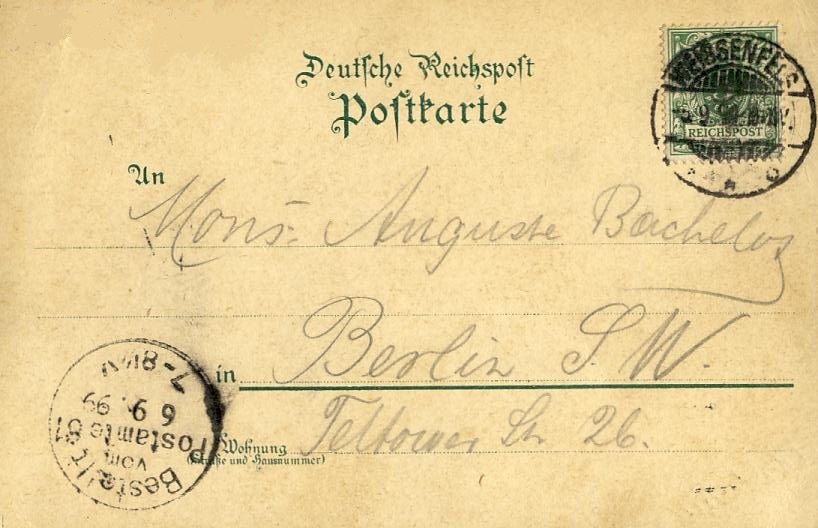 Deutsche Reichspost
Postkarte
WEISSENFELS
5 9
REICHSPOST
An
Mons: Auguste Bachelos
in Berlin S. W.
Wohnung Teltower Str 26.
(Straße und Hausnummer)
Bestellt
vom
Postamte 61
6 9. 99
7-8½V